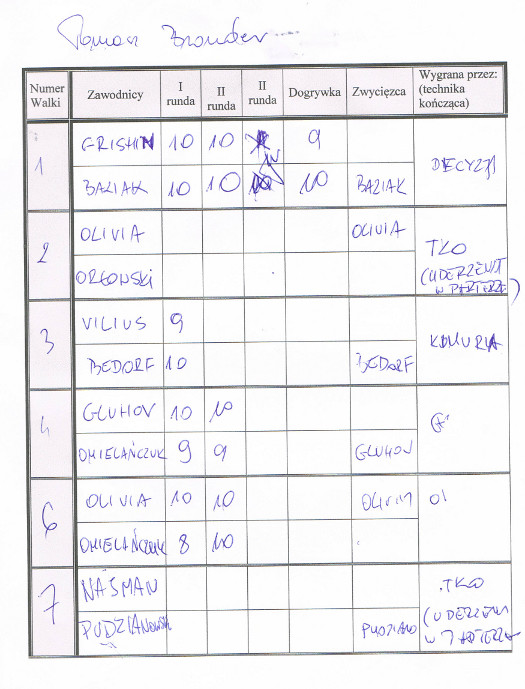 Tomasz Bronder
Numer Walki Zawodnicy I runda II runda II runda Dogrywka Zwycięzca Wygrana przez: (technika kończąca)
1 GRISHIN 10 10 9
BAZIAK 10 10 10 BAZIAK DECYZJI
2 OLIVIA OLIVIA TKO
ORŁOWSKI (UDERZENIA W PARTERZE)
3 VILIUS 9
BEDORF 10 BEDORF KIMURA
4 GLUHOV 10 10
OMIELAŃCZUK 9 9 GLUHOV
6 OLIVIA 10 10 OLIVIA
OMIELAŃCZUK 8 10
7 NASMAN TKO
PUDZIANOWSKI PUDZIANO (UDERZENIA W PARTERZE